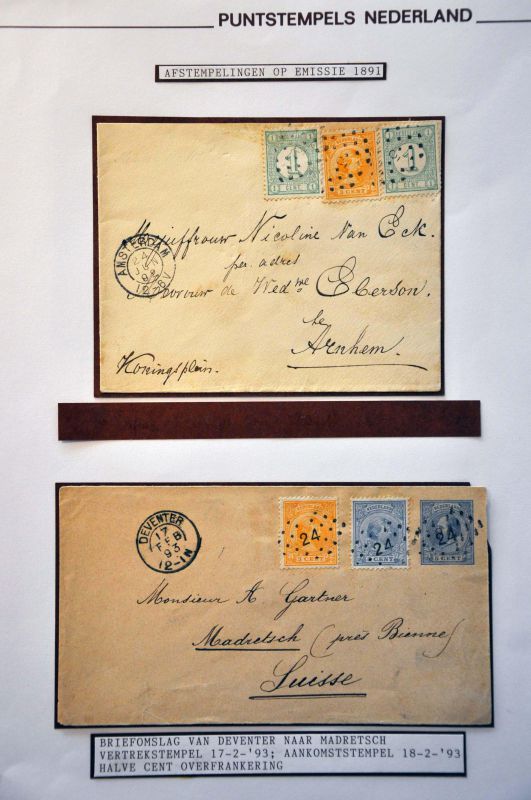 PUNTSTEMPELS NEDERLAND
AFSTEMPELINGEN OP EMISSIE 1891
1 1
CENT 3 CENT CENT
Mejuffrouw Nicoline van Eck.
per adres
AMSTERDAM
Mevrouw de Wed me Eberson.
te
Arnhem.
Koningsplein.
DEVENTER
17
FEB
93
12-1N
24 24 24
3 CENT CENT 5 CENT
Monsieur A Gartner
Madretsch (près Bienne)
Suisse
BRIEFOMSLAG VAN DEVENTER NAAR MADRETSCH
VERTREKSTEMPEL 17-2-'93; AANKOMSTSTEMPEL 18-2-'93
HALVE CENT OVERFRANKERING